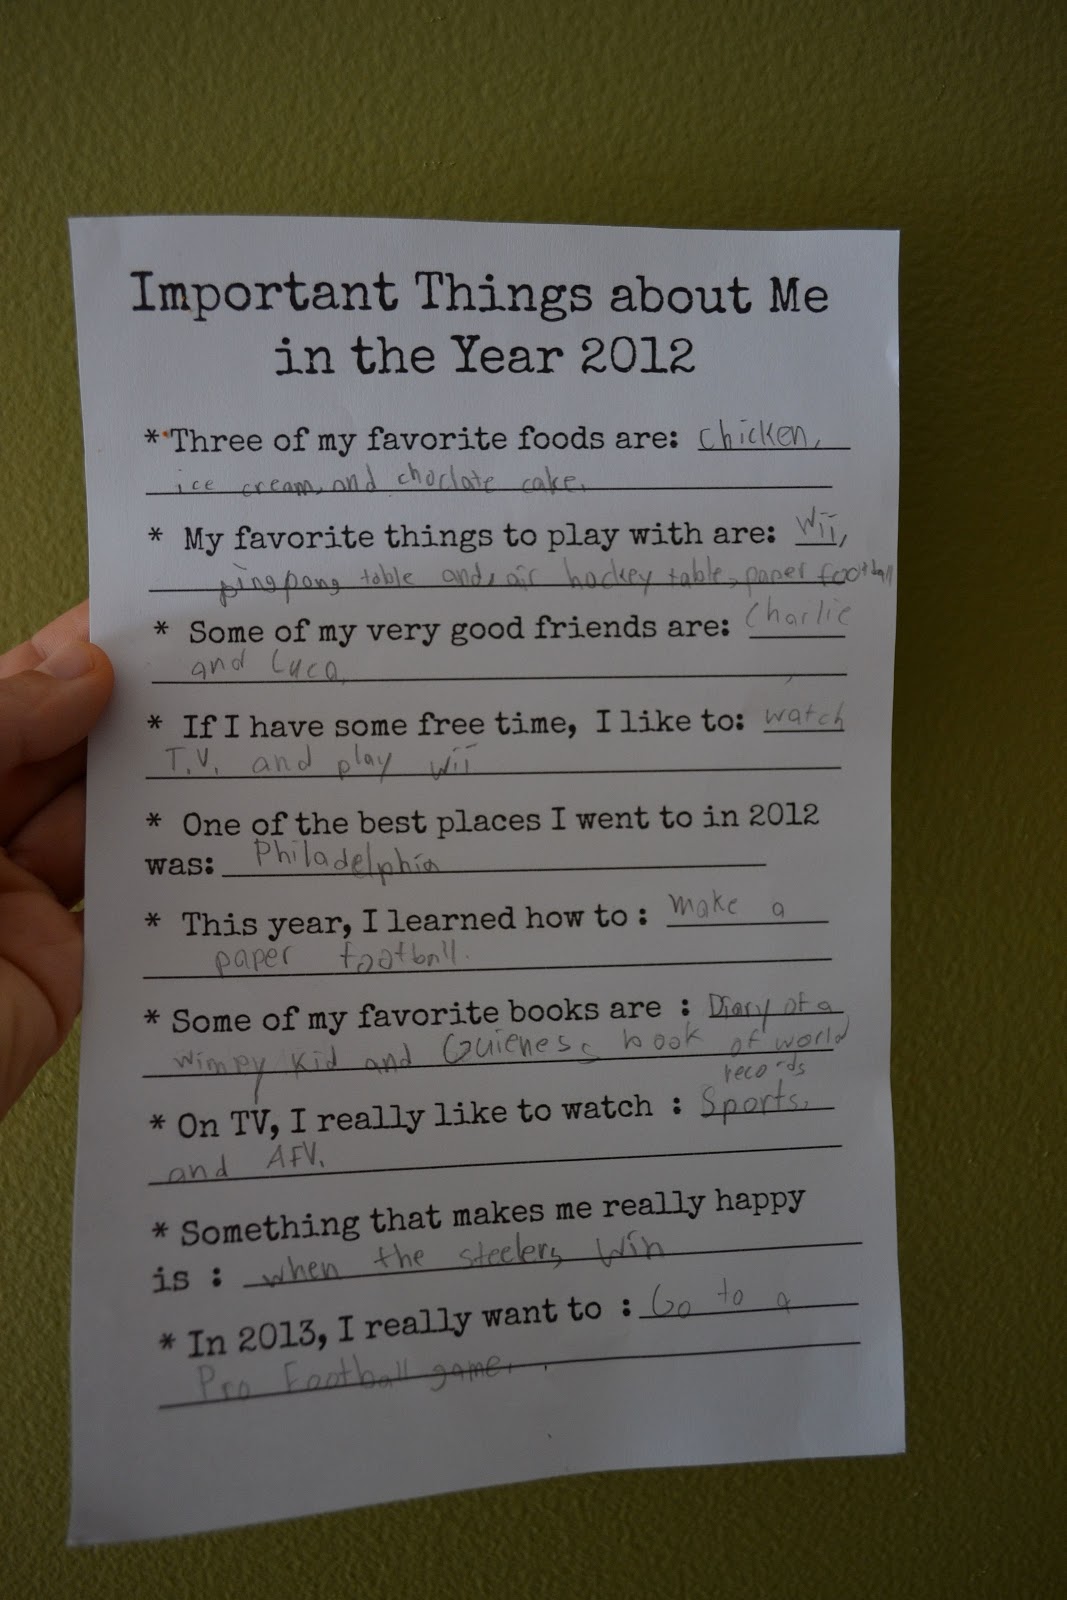 Important Things about Me
in the Year 2012
* Three of my favorite foods are: chicken,
ice cream, and choclate cake.
* My favorite things to play with are: Wii,
pingpong table and, air hockey table, paper football
* Some of my very good friends are: Charlie
and Luca.
* If I have some free time, I like to: watch
T.V. and play wii
* One of the best places I went to in 2012
was: Philadelphia
* This year, I learned how to : make a
paper football.
* Some of my favorite books are : Diary of a
wimpy kid and Guieness book of world
records
* On TV, I really like to watch : Sports,
and AFV.
* Something that makes me really happy
is : when the steelers win
* In 2013, I really want to : Go to a
Pro Football game.